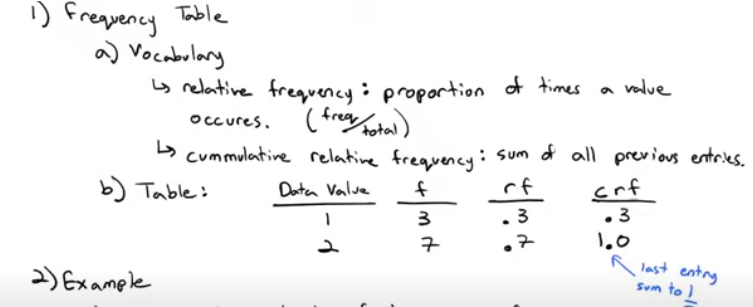 1) Frequency Table
a) Vocabulary
↳ relative frequency: proportion of times a value
occures. (freq/total)
↳ cummulative relative frequency: sum of all previous entries.
b) Table: Data Value f rf crf
1 3 .3 .3
2 7 .7 1.0
last entry
sum to 1
2) Example